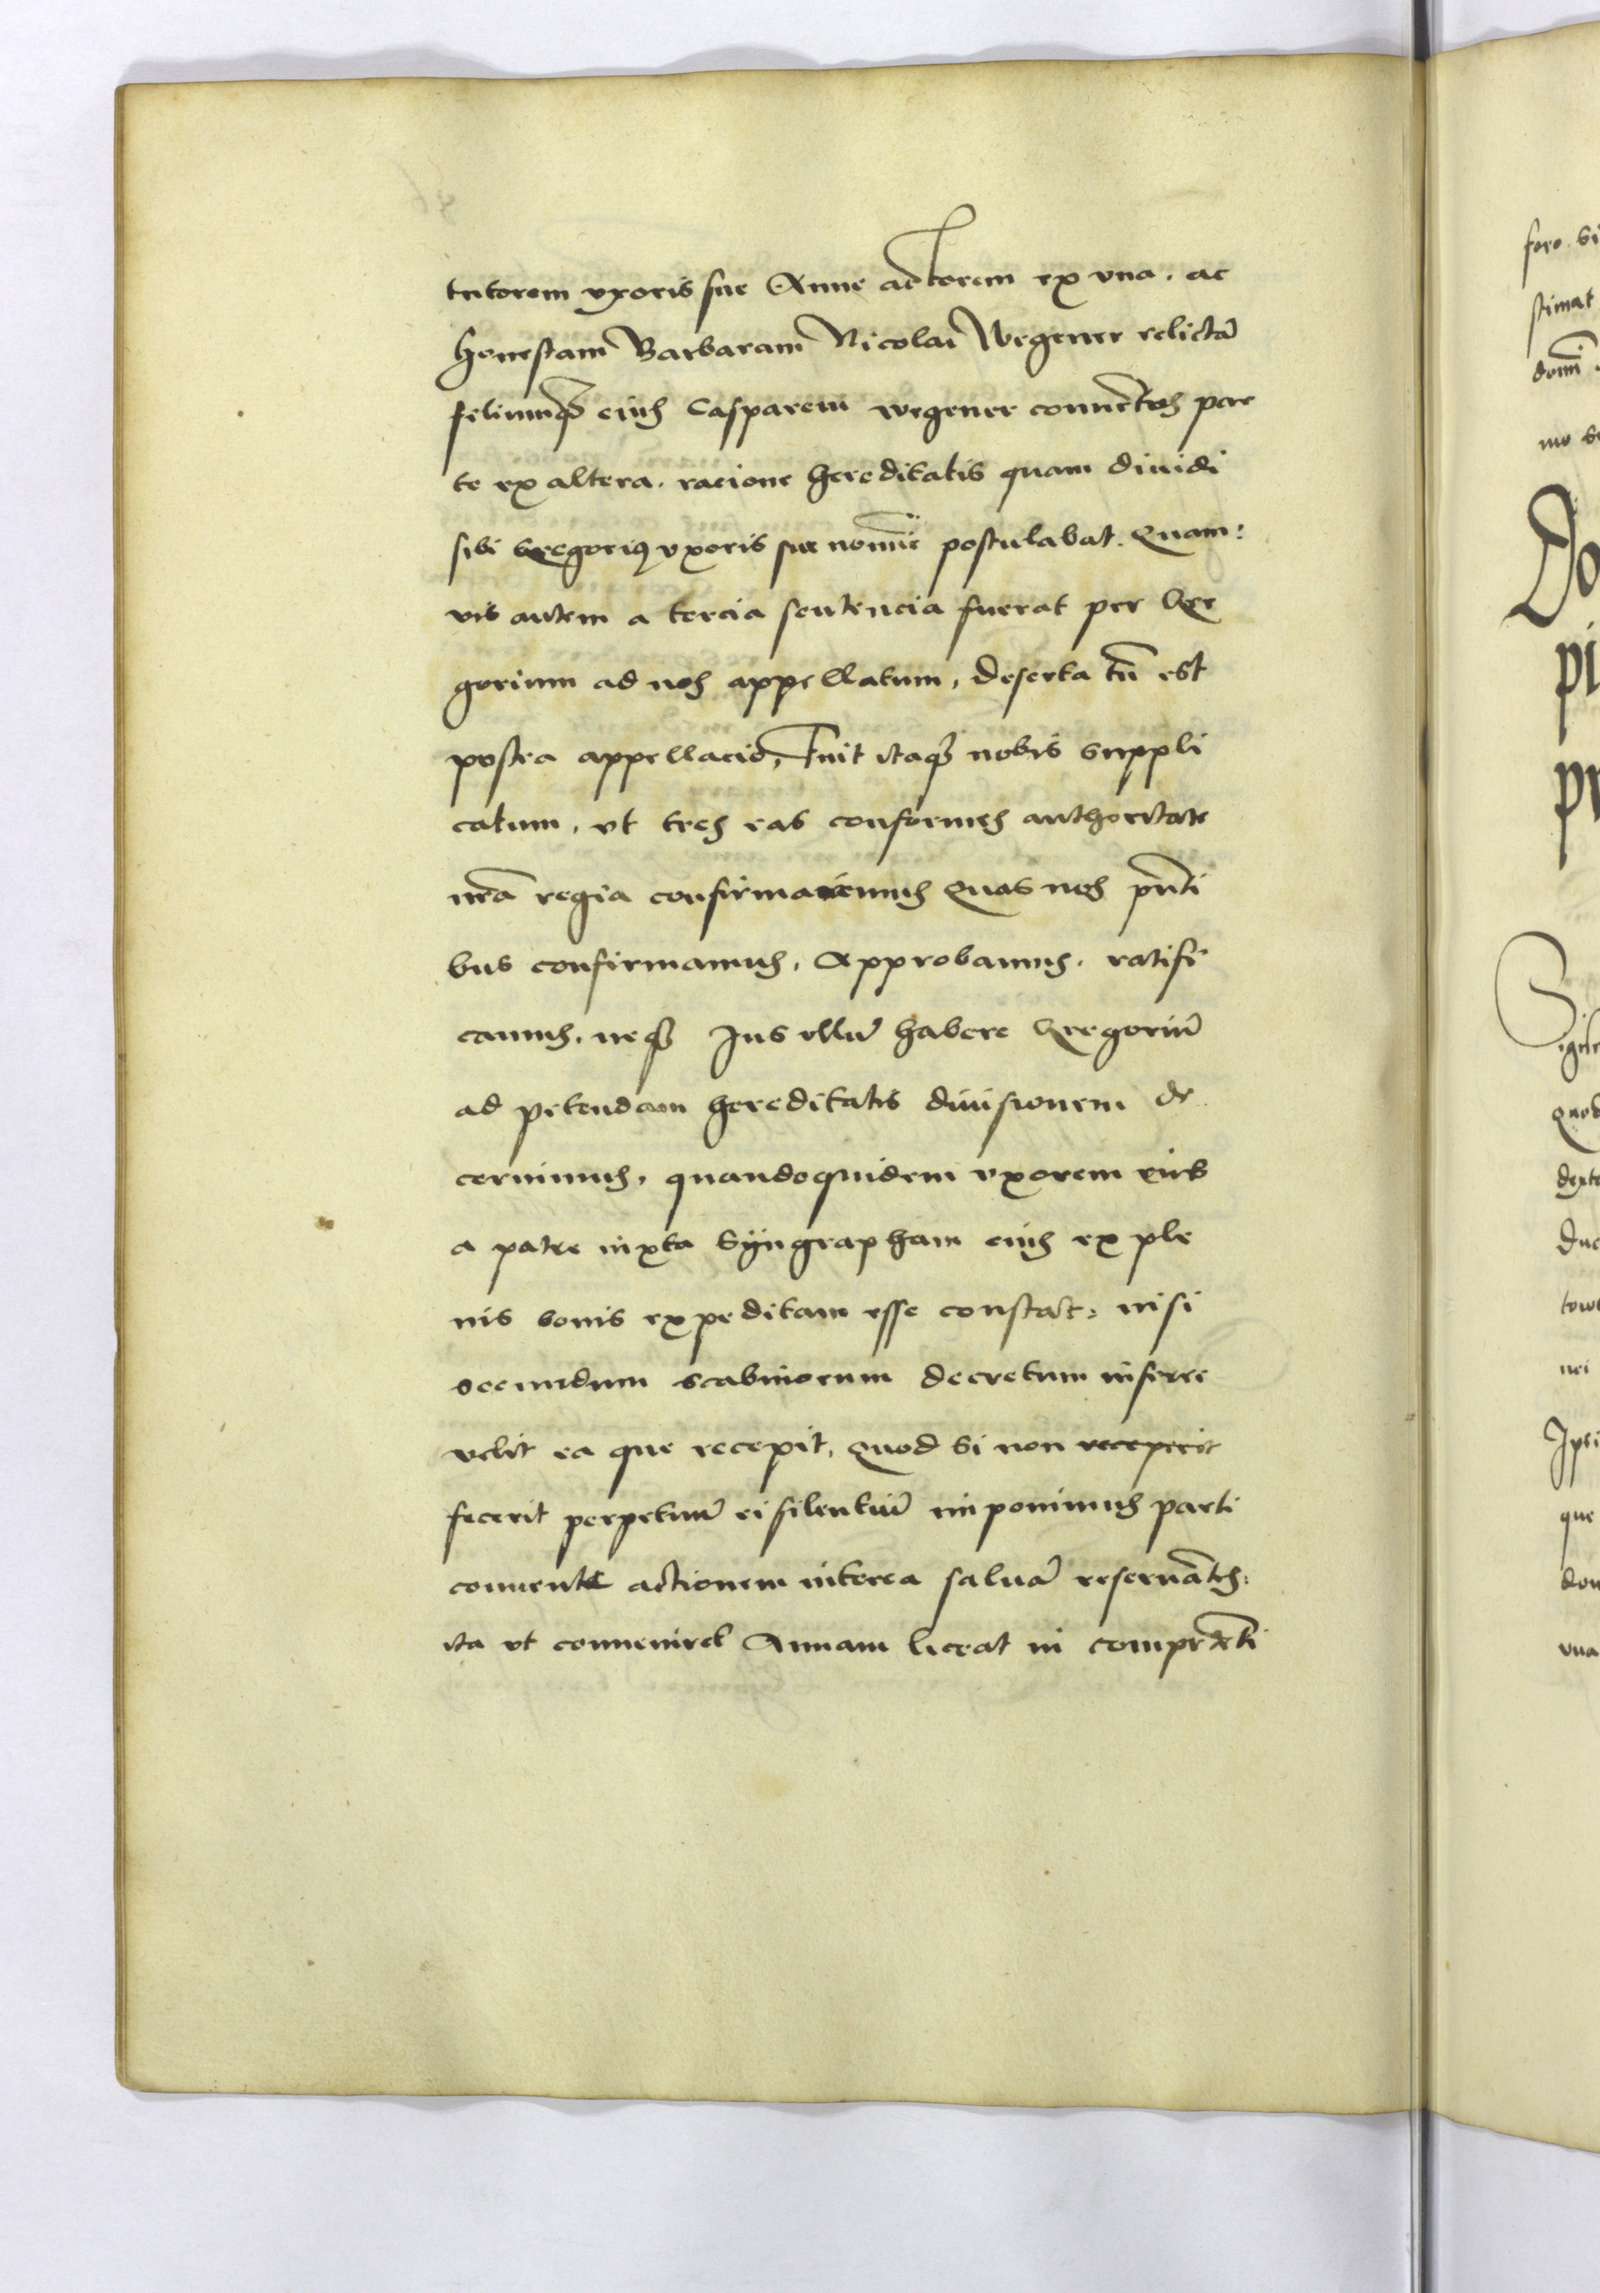 tutorem vxoris sue Anne actorem ex vna. ac
honestam Barbaram Nicolai Wegener relictā
filiumqȝ eius Casparem wegener conuentos par
te ex altera. racione hereditatis quam diuidi
sibi Gregoriꝰ vxoris sue nomīe postulabat. Quam:
vis autem a tercia sentencia fuerat per Gre
gorium ad nos appellatum, deserta tn̄ est
postea appellacio, Fuit itaqȝ nobis suppli
catum, vt tres eas conformes authoritate
nr̄a regia confirmaremus Quas nos pn̄ti
bus confirmamus, Approbamus, ratifi
camus, neqȝ Jus vllū habere Gregoriū
ad petendam hereditatis diuisionem de
cernimus, quandoquidem vxorem eius
a patre iuxta Syngrapham eius ex ple
nis bonis expeditam esse constat: nisi
secundum scabinorum decretum inferre
velit ea que recepit, Quod si non receperit
fecerit perpetuū ei silentiū imponimus parti
conuente actionem interea saluā reseruātes:
ita vt conuenire Annam liceat in

foro. Si
stimat
domī
mo
Do
pi
pr
Quod
dexte
Duc
nei
Ipsi
que
don
vna